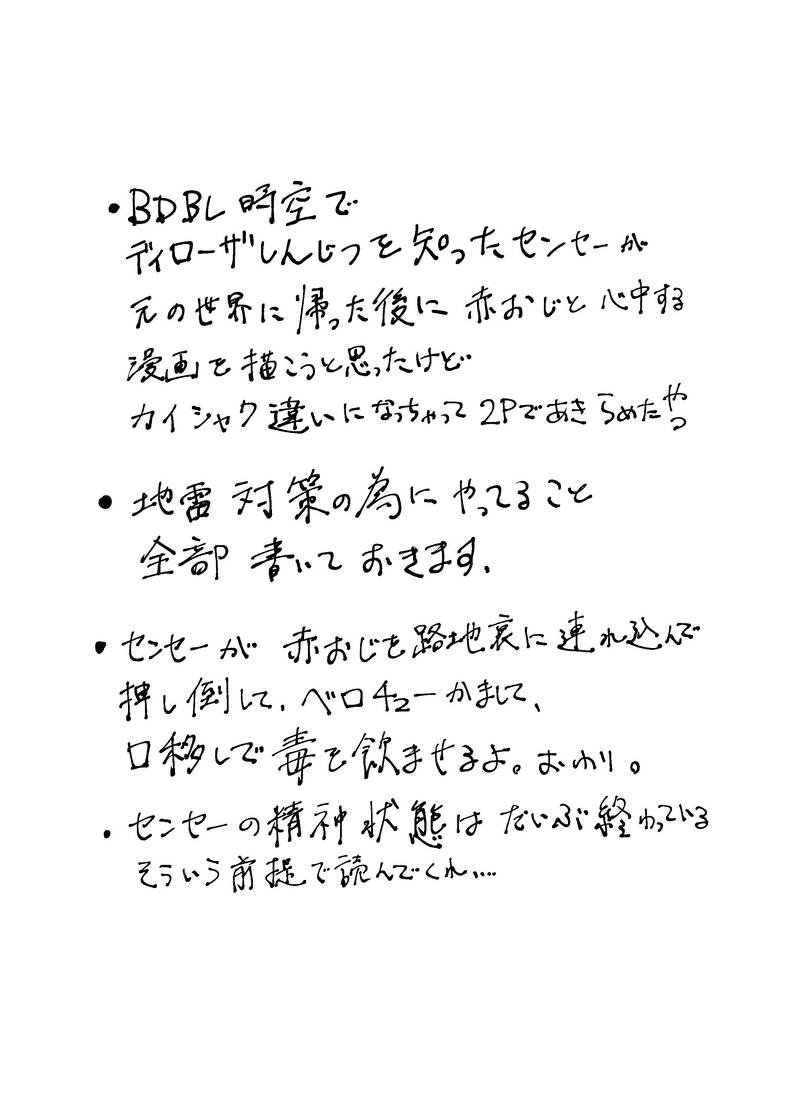 ・BDBL時空で
ディローザしんじつを知ったセンセーが
元の世界に帰った後に 赤おじと心中する
漫画を描こうと思ったけど
カイシャク違いになっちゃって2Pであきらめたやつ
・地雷対策の為にやってること
全部書いておきます.
・センセーが 赤おじを路地裏に連れ込んで
押し倒して、ベロチューかまして、
口移しで毒を飲ませるよ。おわり。
・センセーの精神状態はだいぶ終わっている
そういう前提で読んでくれ....